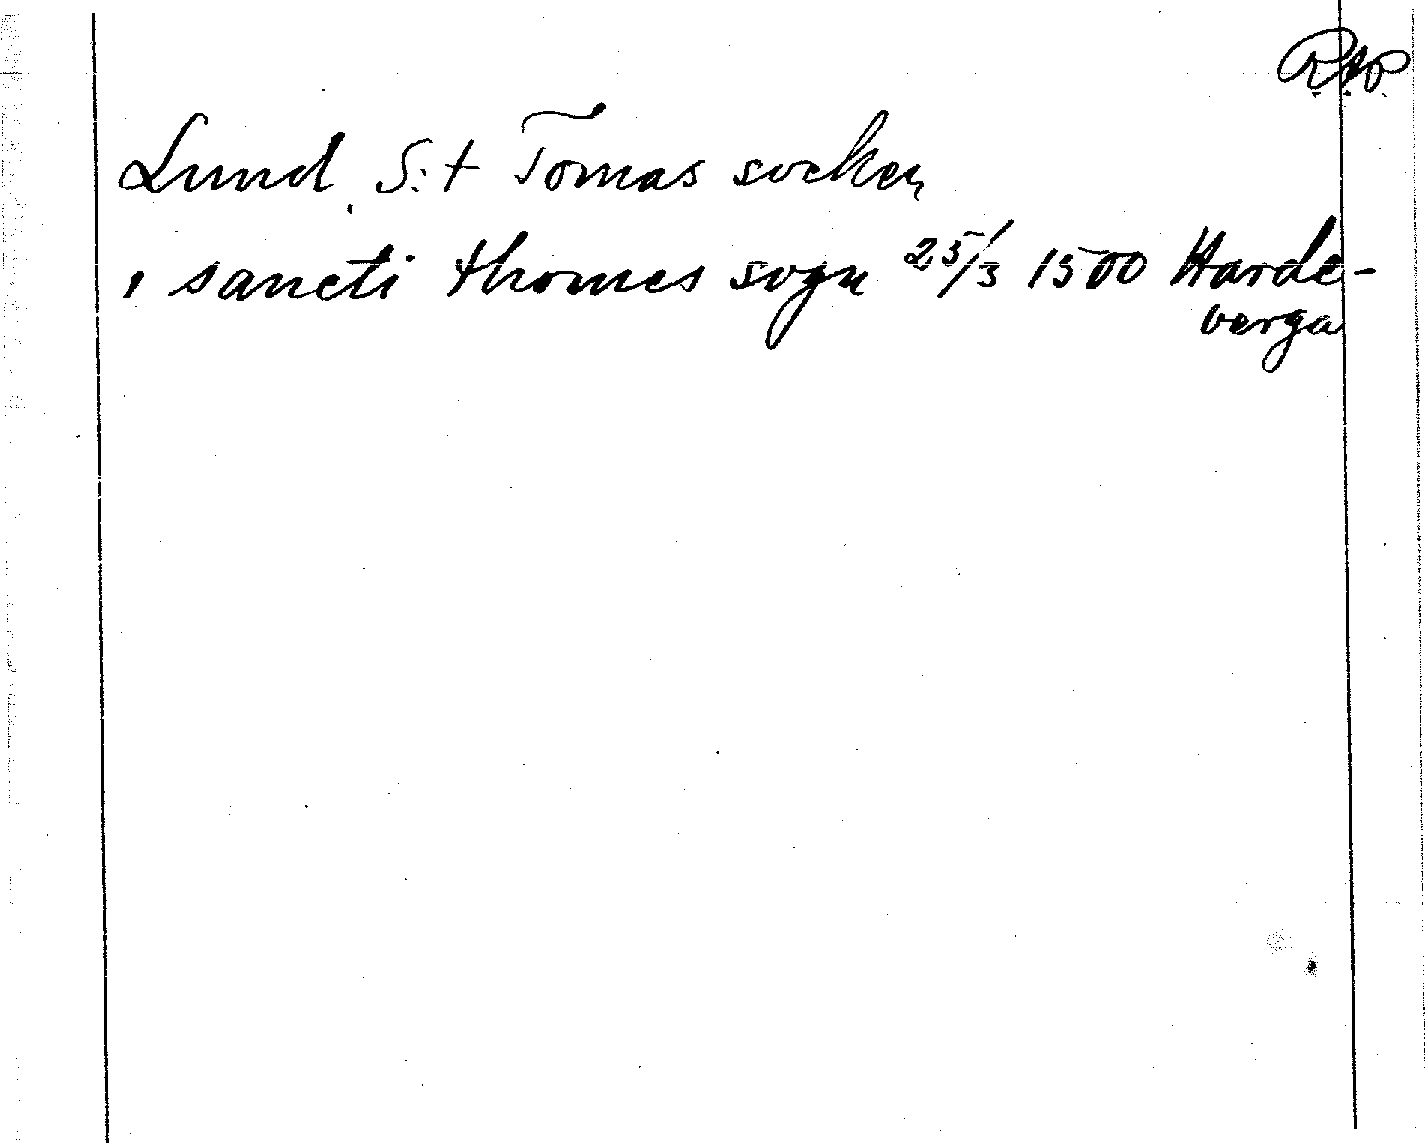 Lund, S:t Tomas socken
, sancti thomes sogn 25/3 1500 Harde-
berga